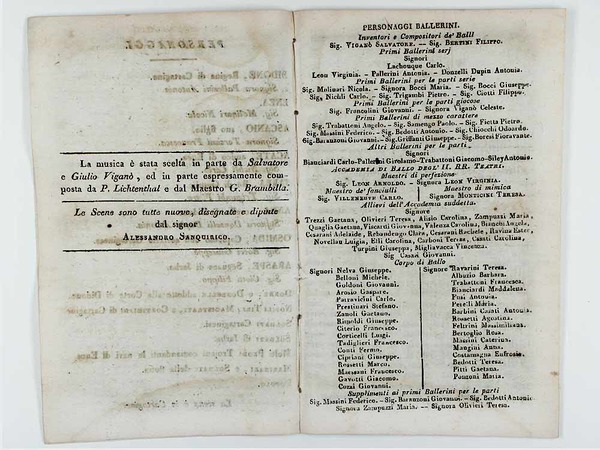 La musica è stata scelta in parte da Salvatore
e Giulio Viganò, ed in parte espressamente com-
posta da P. Lichtenthal e dal Maestro G. Brambilla.
Le Scene sono tutte nuove, disegnate e dipinte
dal signor
ALESSANDRO SANQUIRICO.
PERSONAGGI BALLERINI.
Inventori e Compositori de' Balli
Sig. VIGANÒ SALVATORE. — Sig. BERTINI FILIPPO.
Primi Ballerini serj
Signori
Lachouque Carlo.
Leon Virginia. - Pallerini Antonia. - Donzelli Dupin Antonia.
Primi Ballerini per le parti serie
Sig. Molinari Nicola. - Signora Bocci Maria. - Sig. Bocci Giuseppe.
Sig. Nichli Carlo. - Sig. Trigambi Pietro. - Sig. Ciotti Filippo.
Primi Ballerini per le parti giocose
Sig. Francolini Giovanni. - Signora Viganò Celeste.
Primi Ballerini di mezzo carattere
Sig. Trabattoni Angelo. - Sig. Samengo Paolo. - Sig. Fietta Pietro.
Sig. Massini Federico. - Sig. Bedotti Antonio. - Sig. Chiocchi Odoardo.
Sig. Baranzoni Giovanni. - Sig. Griffanti Giuseppe. - Sig. Borresi Fioravante.
Altri Ballerini per le parti
Signori
Bianciardi Carlo-Pallerini Girolamo-Trabattoni Giacomo-Siley Antonio.
ACCADEMIA DI BALLO DEGL' II. RR. TEATRI.
Maestri di perfezione
Sig. LEON ARNOLDO. - Signora LEON VIRGINIA.
Maestro de' fanciulli
Maestro di mimica
Sig. VILLENEUVE CARLO.
Signora MONTICINI TERESA.
Allievi dell'Accademia suddetta.
Signore
Trezzi Gaetana, Olivieri Teresa, Alisio Carolina, Zampuzzi Maria,
Quaglia Gaetana, Viscardi Giovanna, Valenza Carolina, Bianchi Angela,
Cesarani Adelaide, Rebaudengo Clara, Cesarani Rachele, Ravina Ester,
Novellau Luigia, Elli Carolina, Carboni Teresa, Casati Carolina,
Turpini Giuseppa, Migliavacca Vincenza.
Sig. Casati Giovanni.
Corpo di Ballo
Signori Nelva Giuseppe.
Belloni Michele.
Goldoni Giovanni.
Arosio Gaspare.
Parravicini Carlo.
Prestinari Stefano.
Zanoli Gaetano.
Rimoldi Giuseppe.
Citerio Francesco.
Corticelli Luigi.
Tadiglieri Francesco.
Conti Fermo.
Cipriani Giuseppe.
Rossetti Marco.
Massani Francesco.
Gavotti Giacomo.
Cozzi Giovanni.
Signore Ravarini Teresa.
Albuzio Barbara.
Trabattoni Francesca.
Bianciardi Maddalena.
Fusi Antonia.
Petelli Maria.
Barbini Casati Antonia.
Rossetti Agostina.
Feltrini Massimiliana.
Bertoglio Rosa.
Massini Caterina.
Mangini Anna.
Costamagna Eufrosia.
Bedotti Teresa.
Pitti Gaetana.
Ponzoni Maria.
Supplimenti ai primi Ballerini per le parti
Sig. Massini Federico. - Sig. Baranzoni Giovanni. - Sig. Bedotti Antonio
Signora Zampuzzi Maria. — Signora Olivieri Teresa.